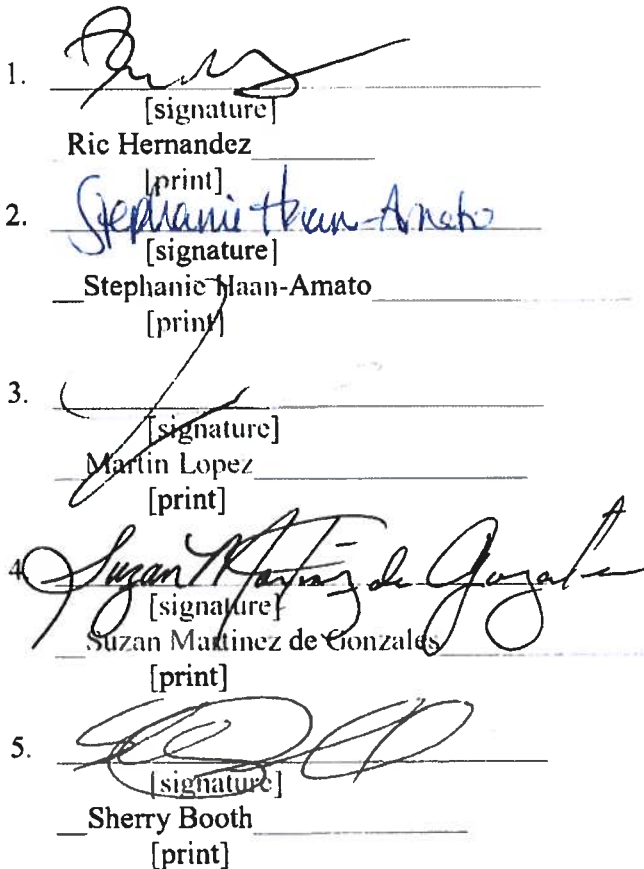 1.
[signature]
Ric Hernandez
[print]
2. Stephanie Haan-Amato
[signature]
Stephanie Haan-Amato
[print]
3.
[signature]
Martin Lopez
[print]
4. Suzan Martinez de Gonzales
[signature]
Suzan Martinez de Gonzales
[print]
5.
[signature]
Sherry Booth
[print]